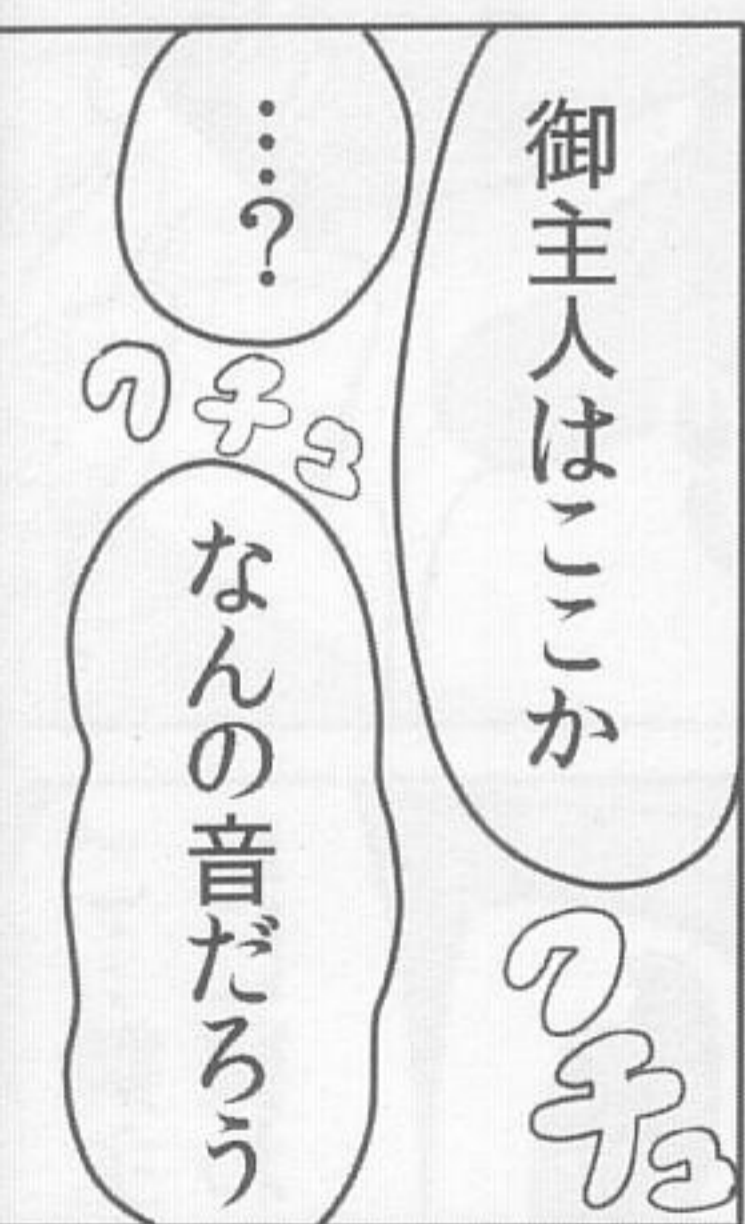 御主人はここか
クチュ
…?
クチュ
なんの音だろう